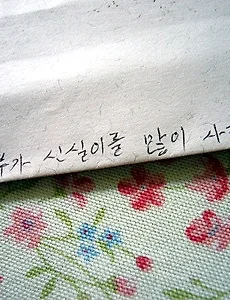 가 신실이를 많이 사